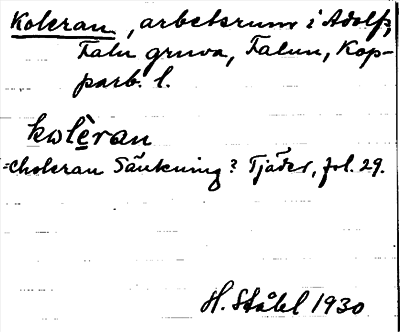 Koleran, arbetsrum i Adolfs,
Falu gruva, Falun, Kop-
parb. l.
kolèran
=choleran Sänkning? Tjäder, fol. 29.
H. Ståhl 1930